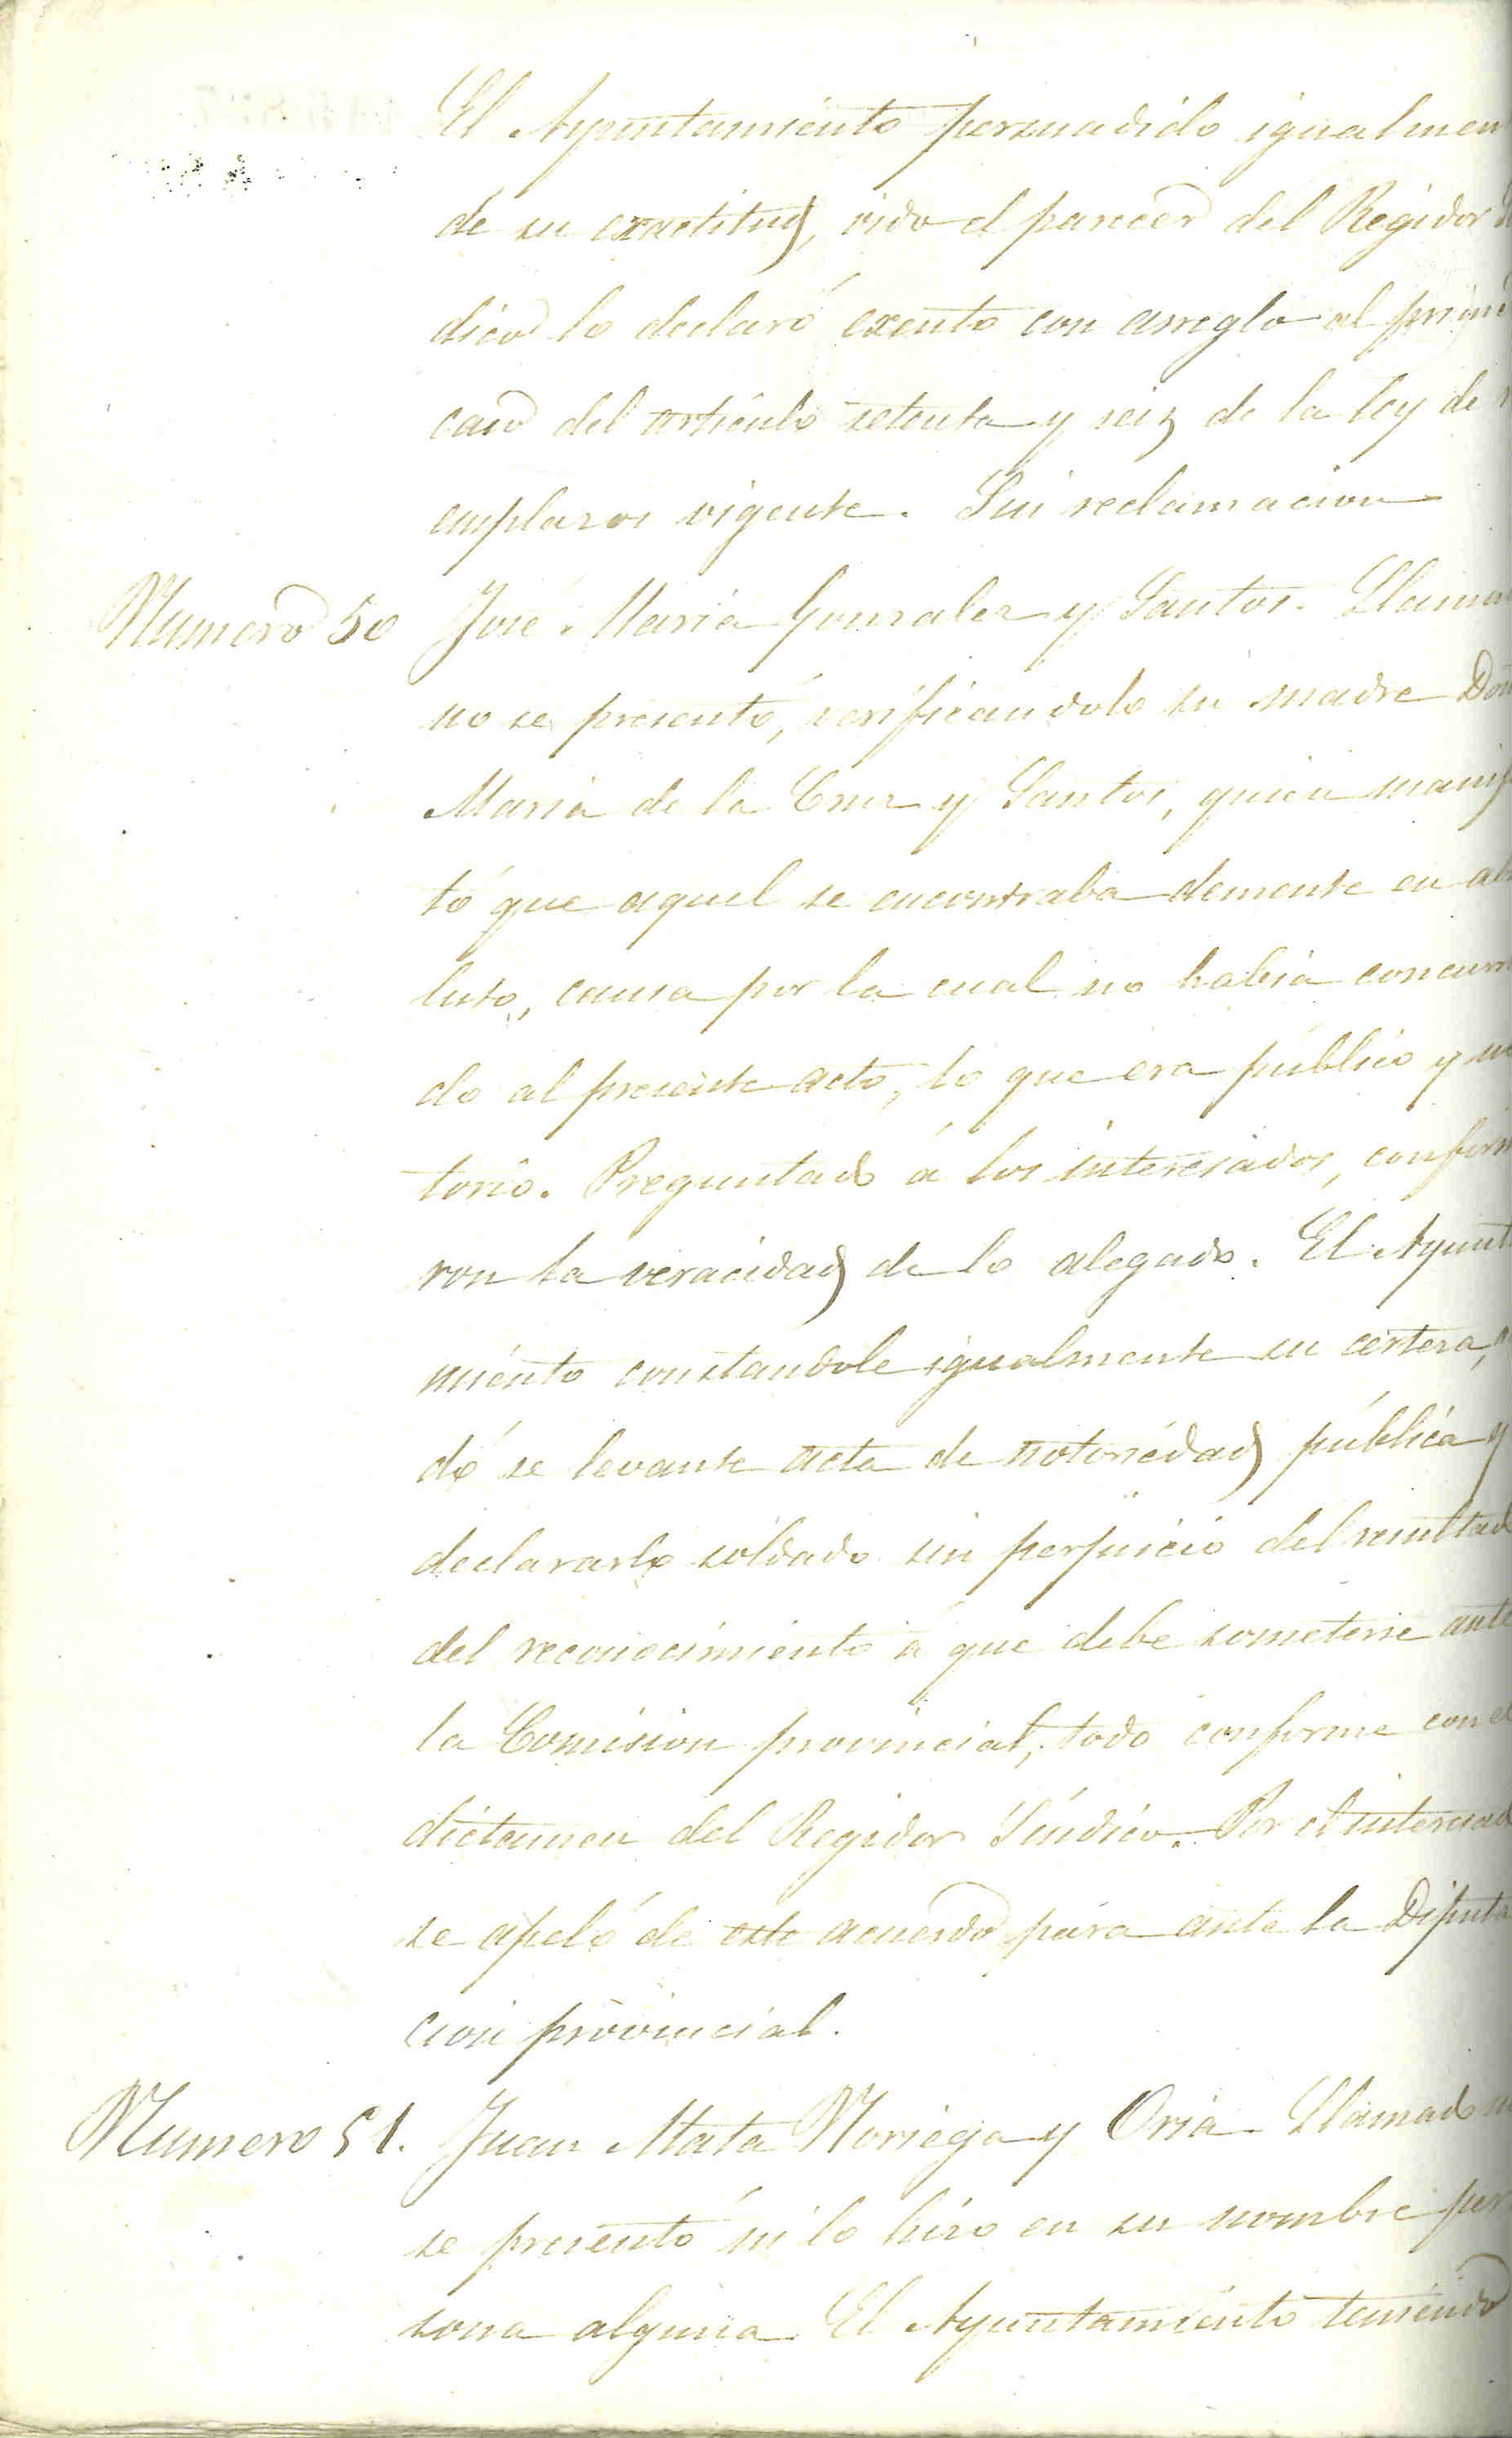 El Ayuntamiento persuadido igualmen
de su exactitud, oido el parecer del Regidor
dico lo declaró exento con arreglo al prime
caso del artículo setenta y seis de la ley de r
emplazos vigente. Sin reclamacion
Numero 50 José María Gonzalez y Santos. Llama
no se presentó, verificandolo su madre Doñ
Maria de la Cruz y Santos, quien manif
tó que aquel se encontraba demente en ab
luto, causa por la cual no habia concurr
do al presente acto, lo que era público y no
torio. Preguntado á los interesados, confirm
ron la veracidad de lo alegado. El Ayunt
miento constandole igualmente su certeza, a
dó se levante acta de notoriedad pública y
declararlo soldado sin perjuicio del resultad
del reconocimiento á que debe someterse ante
la Comision provincial, todo conforme con el
dictamen del Regidor Síndico. Por el interesad
se apeló de este acuerdo para ante la Diputa
cion provincial.
Numero 51. Juan Mata Noriega y Oria. Llamado no
se presentó ni lo hizo en su nombre per
sona alguna. El Ayuntamiento teniendo